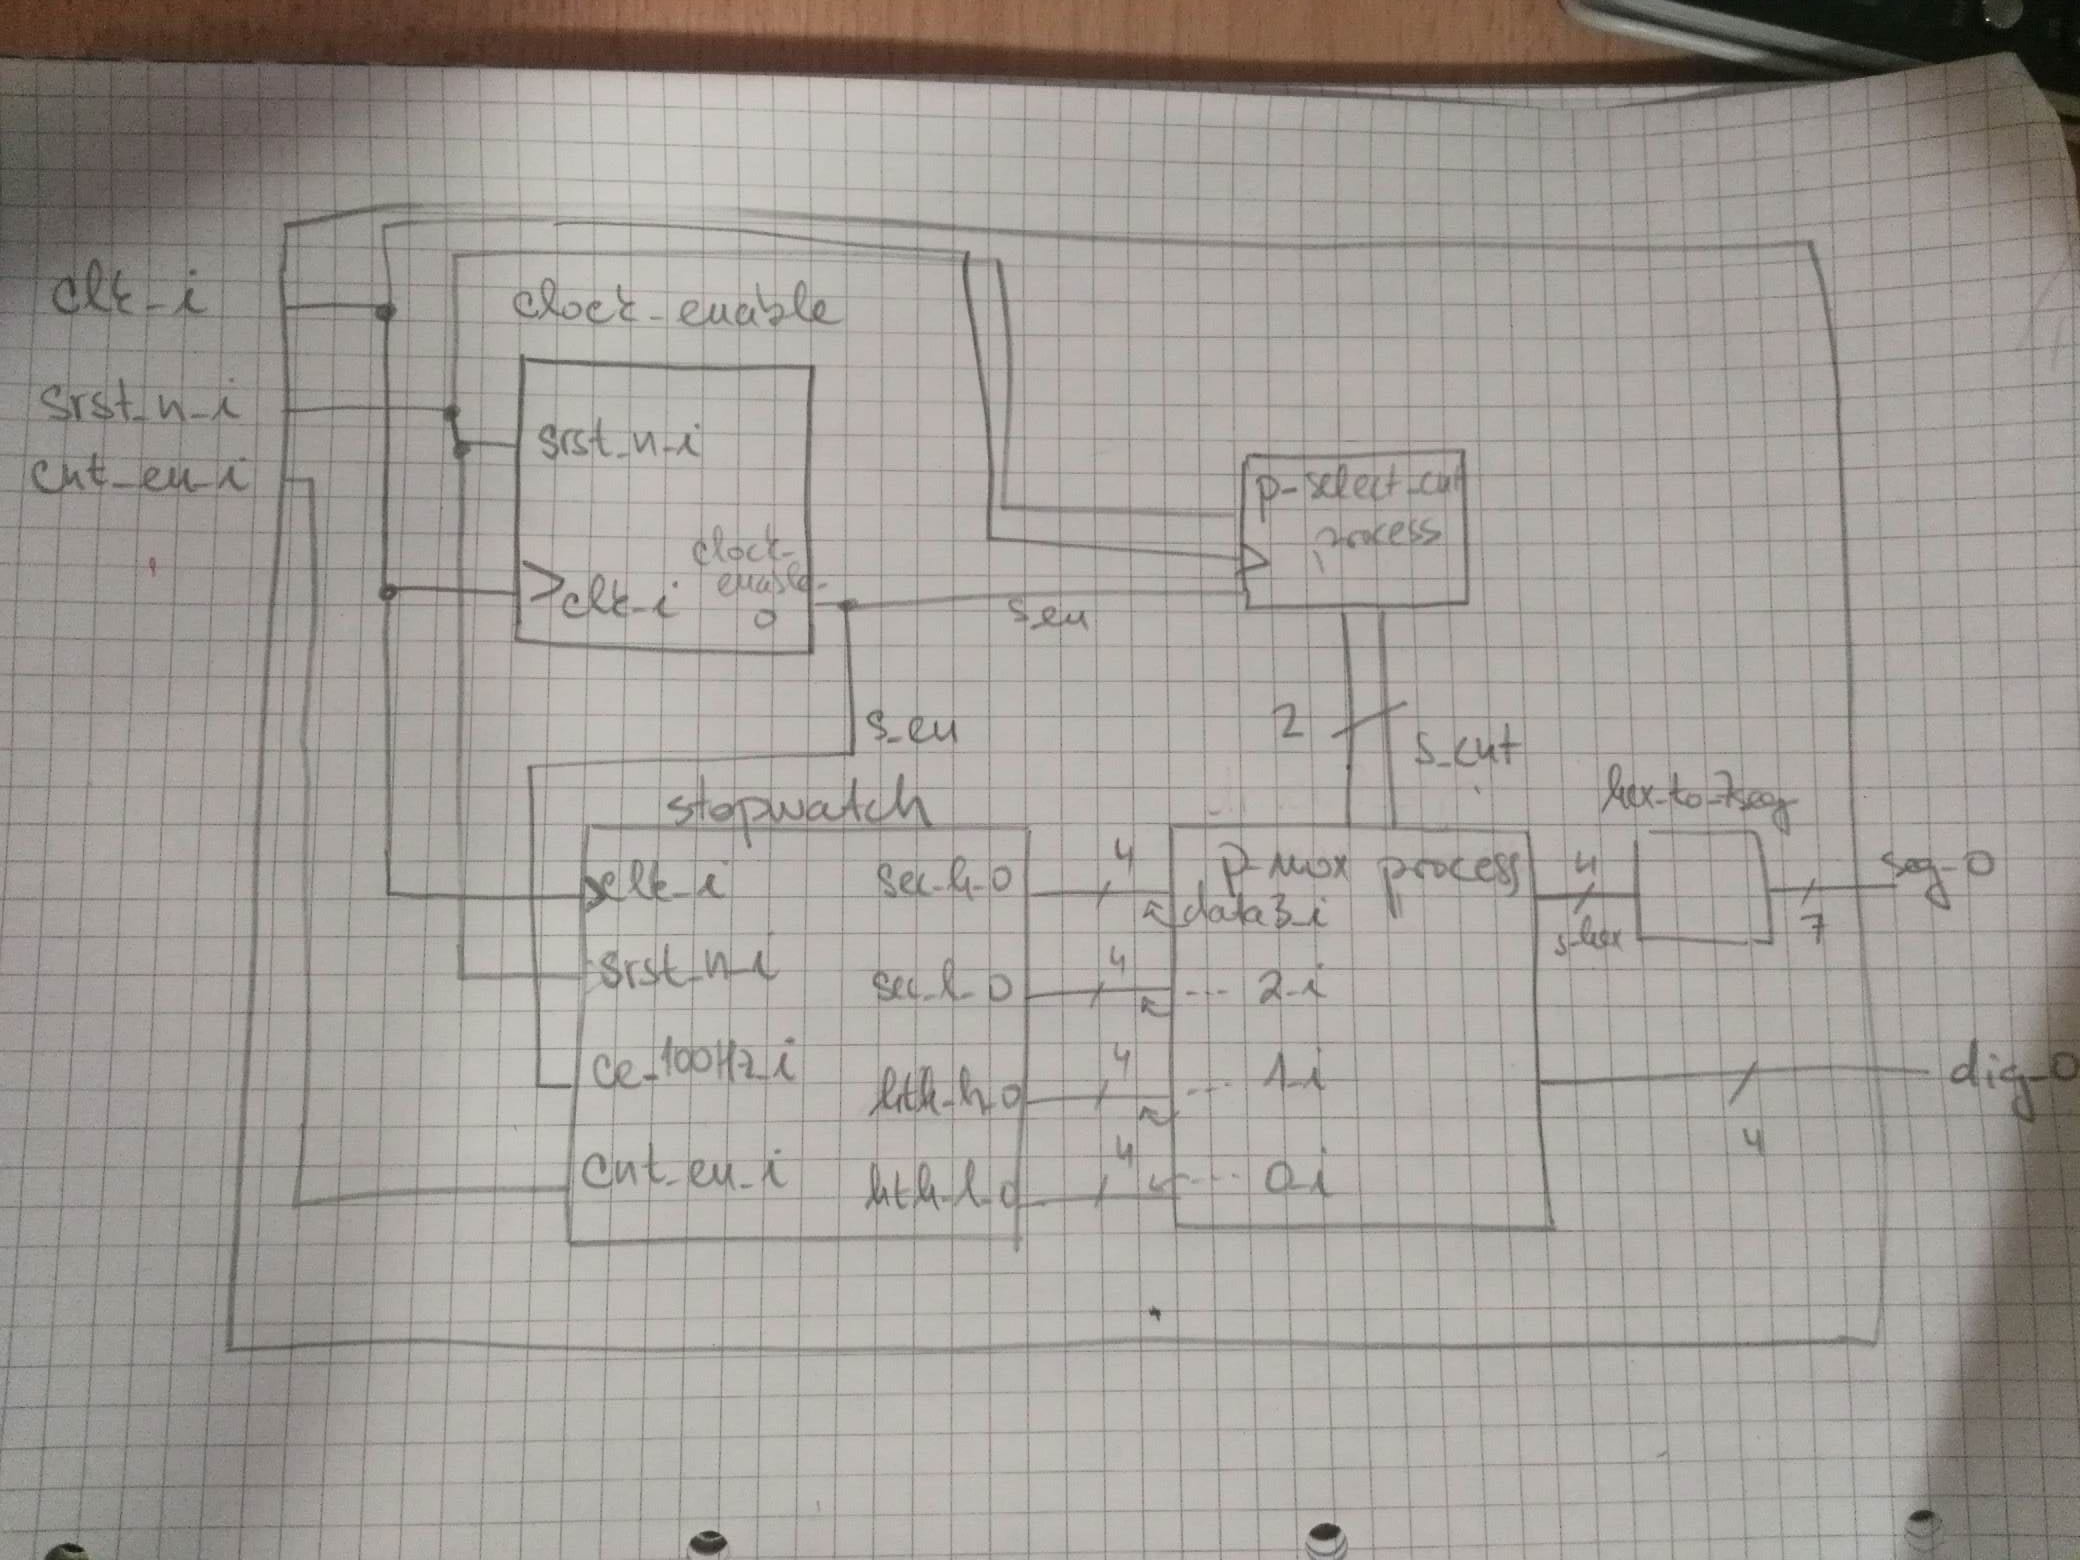 clk_i
srst_n_i
cnt_en_i
clock_enable
srst_n_i
clock_
enable_
o
clk_i
p_select_cnt
process
s_en
s_en
2
s_cnt
hex_to_7seg
stopwatch
clk_i
srst_n_i
ce_100Hz_i
cnt_en_i
sec_h_o
sec_l_o
hth_h_o
hth_l_o
4
4
4
4
p_mux process
data3_i
--- 2_i
--- 1_i
--- 0_i
4
s_hex
7
seg_o
4
dig_o